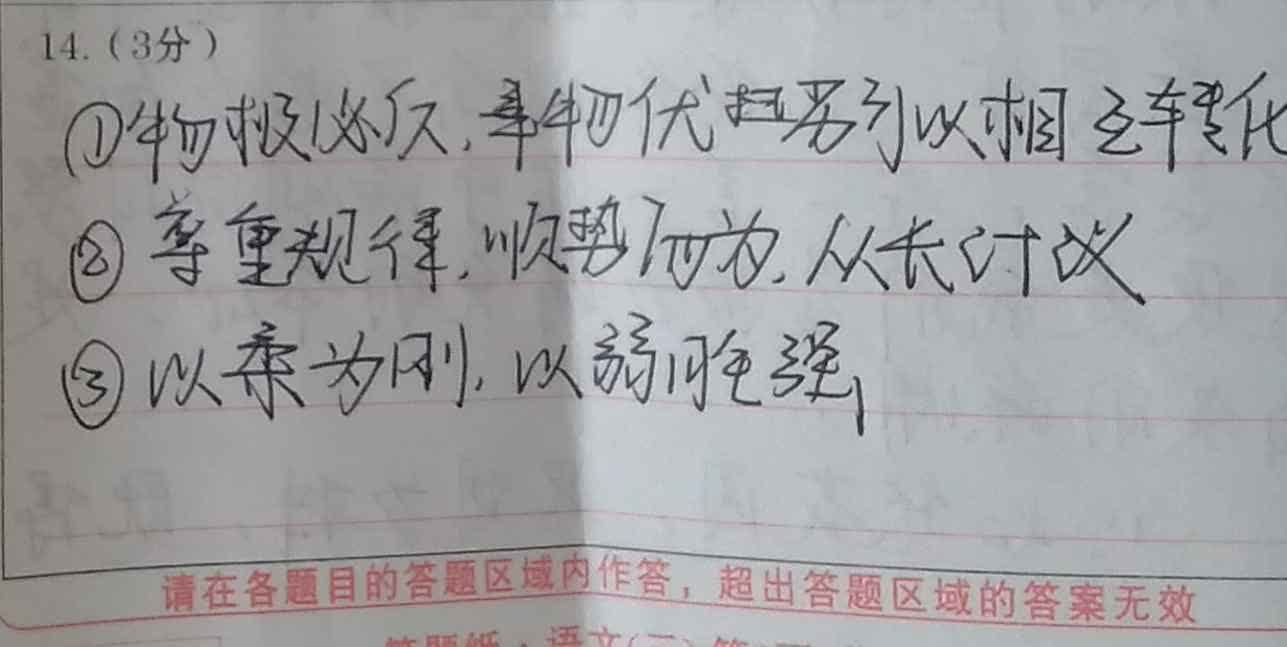 14.（3分）
①物极必反,事物优劣可以相互转化
②尊重规律,顺势而为,从长计议
③以柔为刚,以弱胜强
请在各题目的答题区域内作答，超出答题区域的答案无效